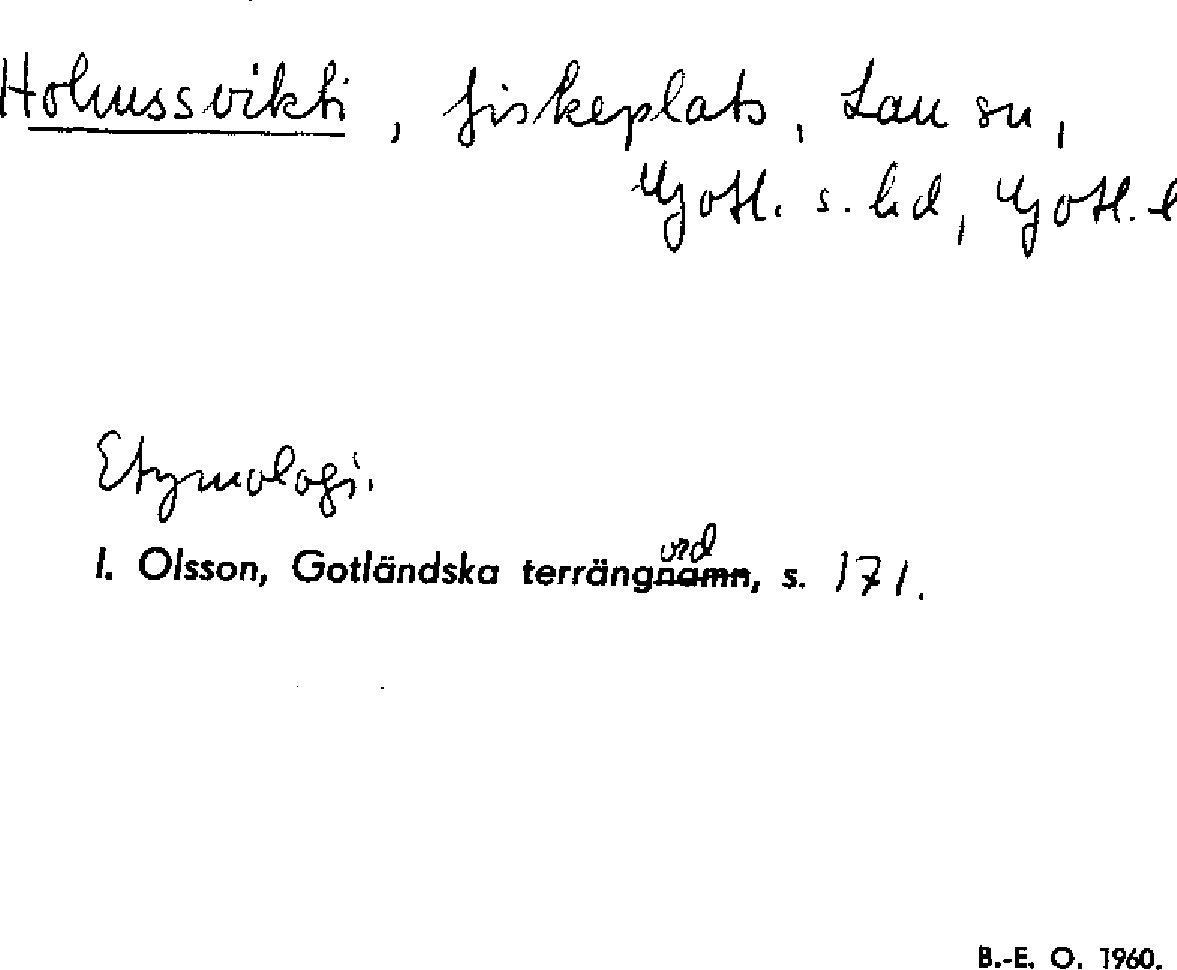 Holmssvikti, fiskeplats, Lau sn,
Gotl. s. hd, Gotl. l
Etymologi.
ord
I. Olsson, Gotländska terrängnamn, s. 171.
B.-E. O. 1960.